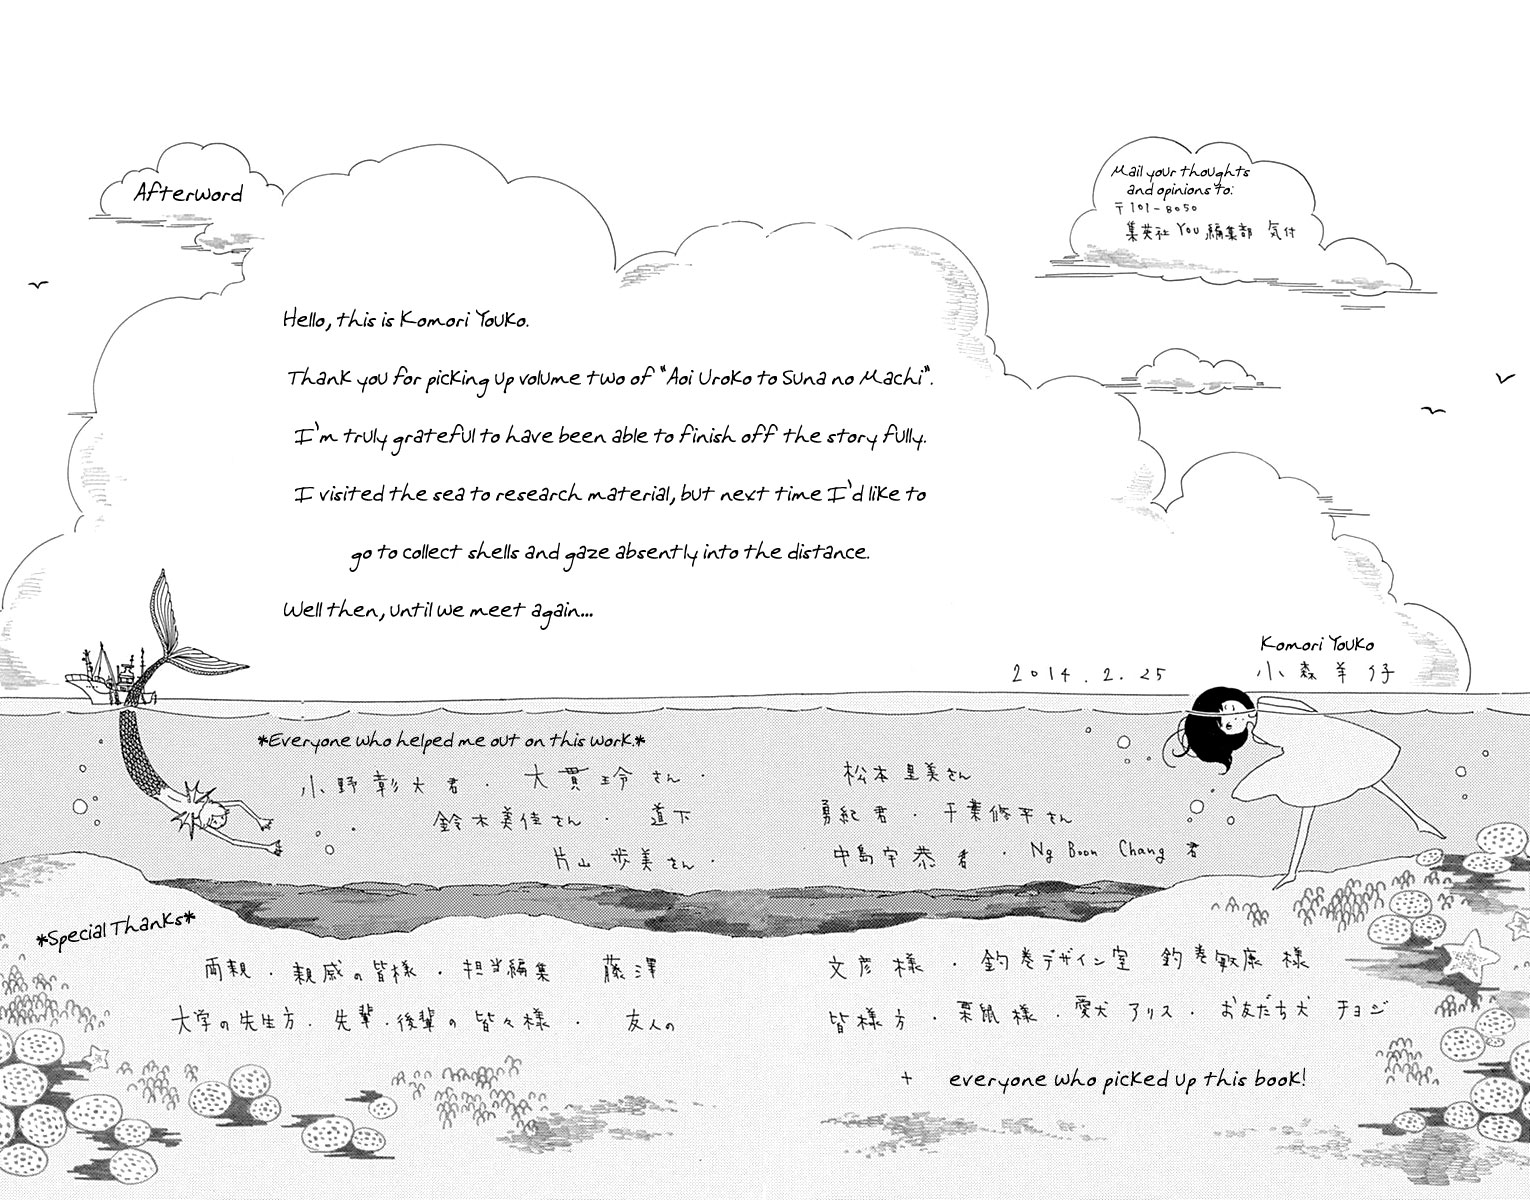 Afterword
Mail your thoughts
and opinions to:
〒101-8050
集英社 You 編集部 気付
Hello, this is Komori Youko.
Thank you for picking up volume two of "Aoi Uroko to Suna no Machi".
I'm truly grateful to have been able to finish off the story fully.
I visited the sea to research material, but next time I'd like to
go to collect shells and gaze absently into the distance.
Well then, until we meet again...
Komori Youko
2014.2.25 小森羊仔
*Everyone who helped me out on this work.*
小野彰大君・大貫玲さん・松本里美さん
鈴木美佳さん・道下勇紀君・千葉修平さん
片山歩美さん・中島宇恭君・Ng Boon Chang 君
*Special Thanks*
両親・親戚の皆様・担当編集 藤澤文彦様・釣巻デザイン室 釣巻敏康様
大学の先生方・先輩・後輩の皆々様・友人の皆様方・栗鼠様・愛犬アリス・お友だち犬 チョジ
+ everyone who picked up this book!